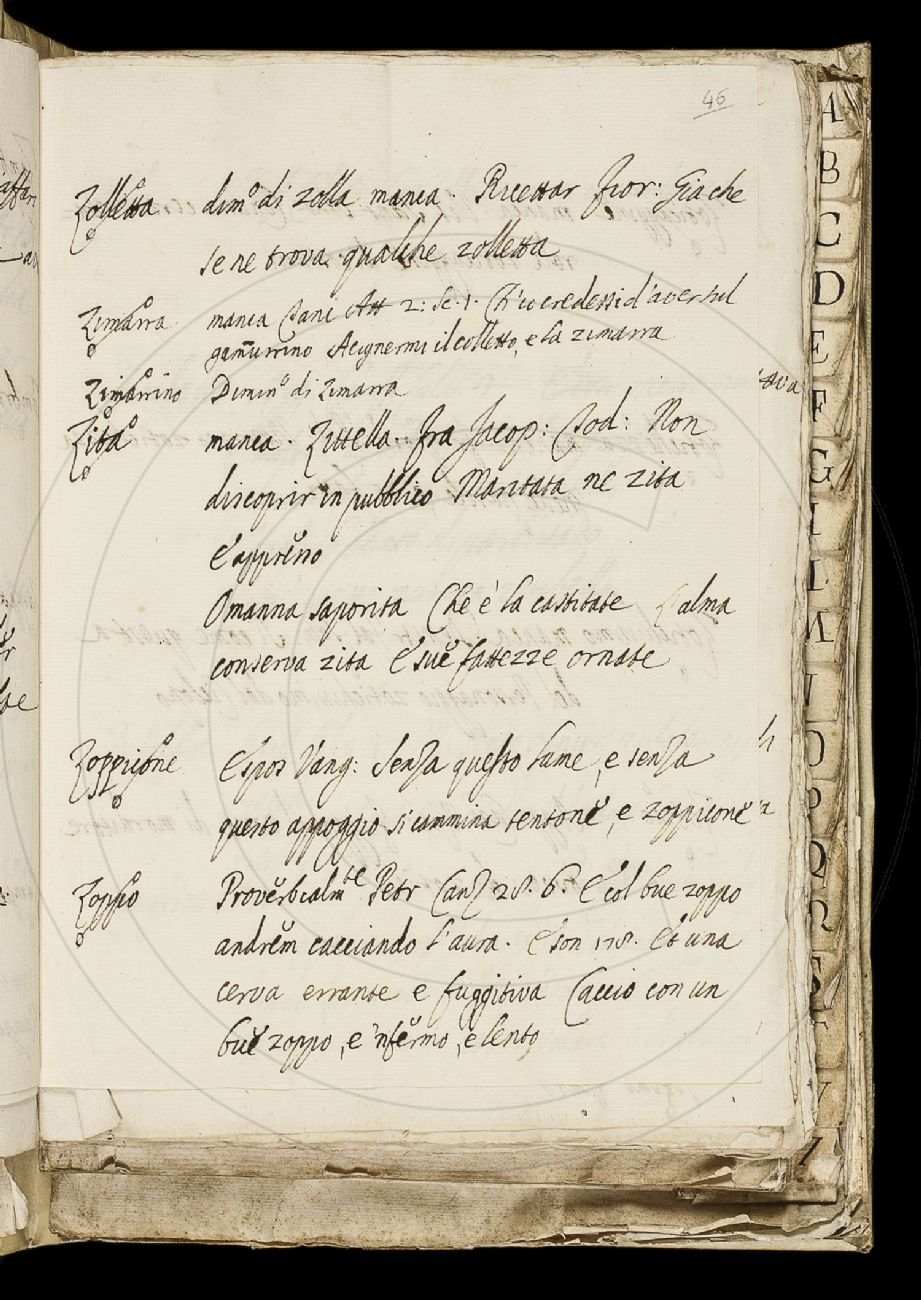 46
Zolletta dim.º di zolla manca. Ricettar Fior: Giache
se ne trova qualche zolletta
Zimarra manca Att 2: Sc. 1. Ch'io credessi d'aver sul
gam̃urrino Acignermi il colletto, e la zimarra
Zimarrino Dimin.º di Zimarra
Zita manca. Zittella. Fra Jacop: Tod: Non
discoprir in pubblico Maritata ne zita
E appreño
O manna saporita Che è la castitate L'alma
conserva zita E sue fattezze ornate
Zoppicone Espos Vang: Senza questo lume, e senza
questo appoggio si cammina tentone, e zoppicone
Zoppo Proverbialmte Petr Canz 28. 6. E col bue zoppo
andrem cacciando l'aura. E son 178. Et una
cerva errante e fuggitiva Caccio con un
bue zoppo, e 'nfermo, e lento
A
B
C
D
E
F
G
I
L
M
O
P
Q
R
S
V